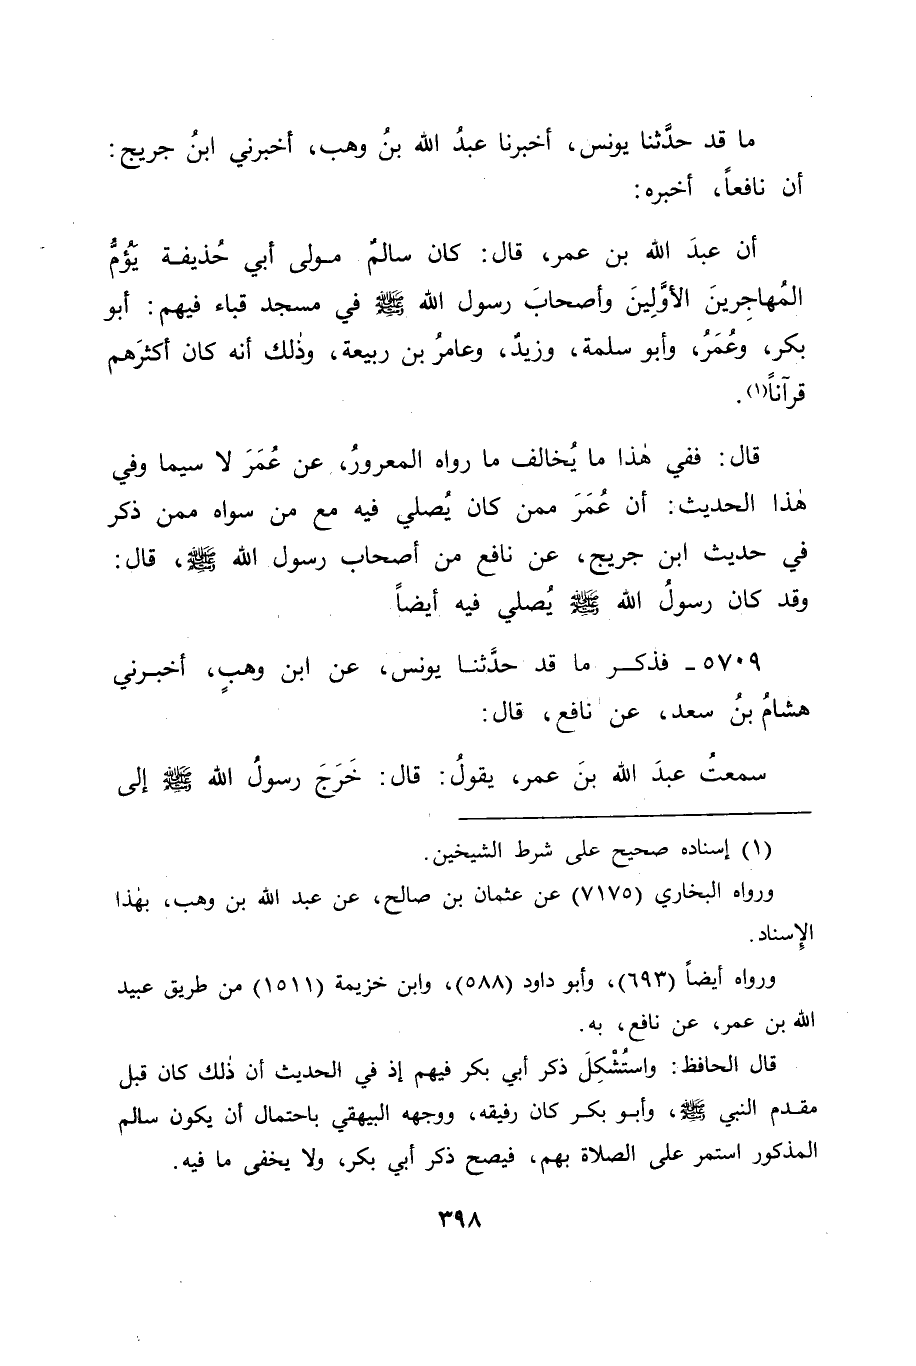 ما قد حدَّثنا يونس، أخبرنا عبدُ الله بنُ وهب، أخبرني ابنُ جريج:
أن نافعاً، أخبره:
أن عبدَ الله بن عمر، قال: كان سالمٌ مولى أبي حُذيفة يَؤُمُّ
المُهاجِرينَ الأوَّلِينَ وأصحابَ رسول الله ﷺ في مسجد قباء فيهم: أبو
بكر، وعُمَرُ، وأبو سلمة، وزيدٌ، وعامرُ بن ربيعة، وذٰلك أنه كان أكثرَهم
قرآناً(١).
قال: ففي هٰذا ما يُخالف ما رواه المعرورُ، عن عُمَرَ لا سيما وفي
هٰذا الحديث: أن عُمَرَ ممن كان يُصلي فيه مع من سواه ممن ذكر
في حديث ابن جريج، عن نافع من أصحاب رسول الله ﷺ، قال:
وقد كان رسولُ الله ﷺ يُصلي فيه أيضاً
٥٧٠٩ ـ فذكر ما قد حدَّثنا يونس، عن ابن وهبٍ، أخبرني
هشامُ بنُ سعد، عن نافع، قال:
سمعتُ عبدَ الله بنَ عمر، يقولُ: قال: خَرَجَ رسولُ الله ﷺ إلى
(١) إسناده صحيح على شرط الشيخين.
ورواه البخاري (٧١٧٥) عن عثمان بن صالح، عن عبد الله بن وهب، بهٰذا
الإسناد.
ورواه أيضاً (٦٩٣)، وأبو داود (٥٨٨)، وابن خزيمة (١٥١١) من طريق عبيد
الله بن عمر، عن نافع، به.
قال الحافظ: واستُشْكِلَ ذكر أبي بكر فيهم إذ في الحديث أن ذٰلك كان قبل
مقدم النبي ﷺ، وأبو بكر كان رفيقه، ووجهه البيهقي باحتمال أن يكون سالم
المذكور استمر على الصلاة بهم، فيصح ذكر أبي بكر، ولا يخفى ما فيه.
٣٩٨